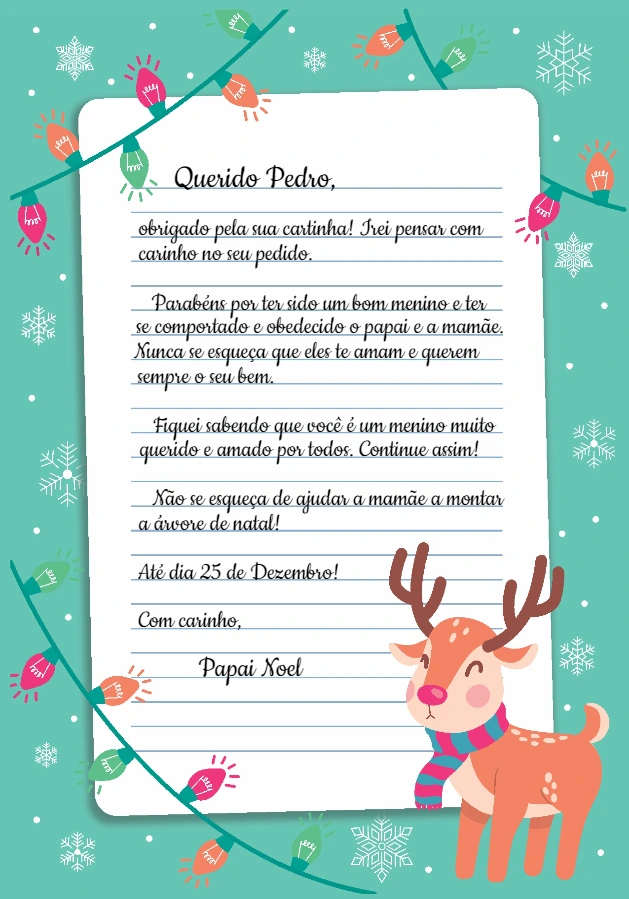 Querido Pedro,
obrigado pela sua cartinha! Irei pensar com
carinho no seu pedido.
Parabéns por ter sido um bom menino e ter
se comportado e obedecido o papai e a mamãe.
Nunca se esqueça que eles te amam e querem
sempre o seu bem.
Fiquei sabendo que você é um menino muito
querido e amado por todos. Continue assim!
Não se esqueça de ajudar a mamãe a montar
a árvore de natal!
Até dia 25 de Dezembro!
Com carinho,
Papai Noel